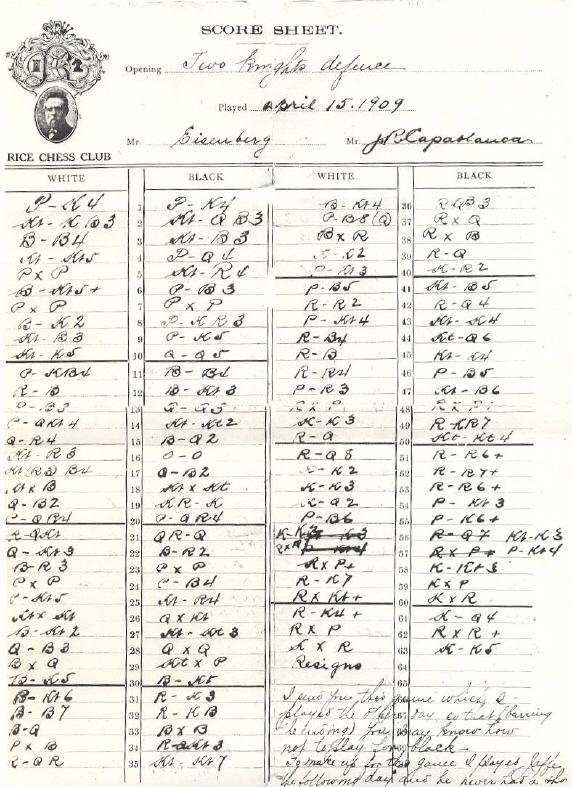 SCORE SHEET.
Opening Two Knights defence
Played April 15. 1909
Mr. Eisenberg Mr. J R Capablanca
RICE CHESS CLUB
WHITE BLACK WHITE BLACK
P-K4 1 P-K4
Kt-KB3 2 Kt-QB3
B-B4 3 Kt-B3
Kt-Kt5 4 P-Q4
PxP 5 Kt-R4
B-Kt5+ 6 P-B3
PxP 7 PxP
B-K2 8 P-KR3
Kt-B3 9 P-K5
Kt-K5 10 Q-Q5
P-KB4 11 B-B4
R-B 12 B-Kt3
P-B3 13
P-QKt4 14 Kt-Kt2
Q-R4 15 B-Q2
Kt-R3 16 0-0
Kt(R3)B4 17 Q-B2
KtxB 18 KtxKt
Q-B2 19 KR-K
P-QR4 20 P-QR4
R-QKt 21 QR-Q
Q-Kt3 22 B-R2
B-R3 23 PxP
PxP 24 P-B4
P-Kt5 25 Kt-R4
KtxKt 26 QxKt
B-Kt2 27 Kt-Kt3
Q-B3 28 QxQ
BxQ 29 KtxP
B-K5 30 B-K5
B-Kt6 31 R-K3
B-B7 32 R-KB
B-Q 33 BxB
PxB 34 R-QKt3
R-QR 35 Kt-Kt7
B-Kt4 36 R-QB3
P-B8(Q) 37 RxQ
BxR 38 RxB
K-K2 39 R-Q
P-Kt3 40 K-R2
P-B5 41 Kt-B5
R-R2 42 R-Q4
P-Kt4 43 Kt-K4
R-B4 44 Kt-Q6
R-B 45 Kt-K4
R-R4 46 P-B5
P-R3 47 Kt-B6
RxP 48
K-K3 49 R-KR7
R-Q 50 Kt-Kt4
R-Q8 51 R-R6+
K-K2 52 R-R7+
K-K3 53 R-R6+
K-Q2 54 P-Kt3
P-B6 55 P-K6+
K-K3 56 R-Q7 Kt-K3
RxR 57 RxP+ P-Kt4
RxP+ 58 K-Kt3
R-K7 59 KxP
RxKt+ 60 KxR
R-K4+ 61 K-Q4
RxP 62 RxR+
KxR 63 K-K5
Resigns 64
I send you this game which I
played the other day, so that (barring
) you may know how
not to play for black -
To make up for this game I played Jaffe
the following day and he never had a